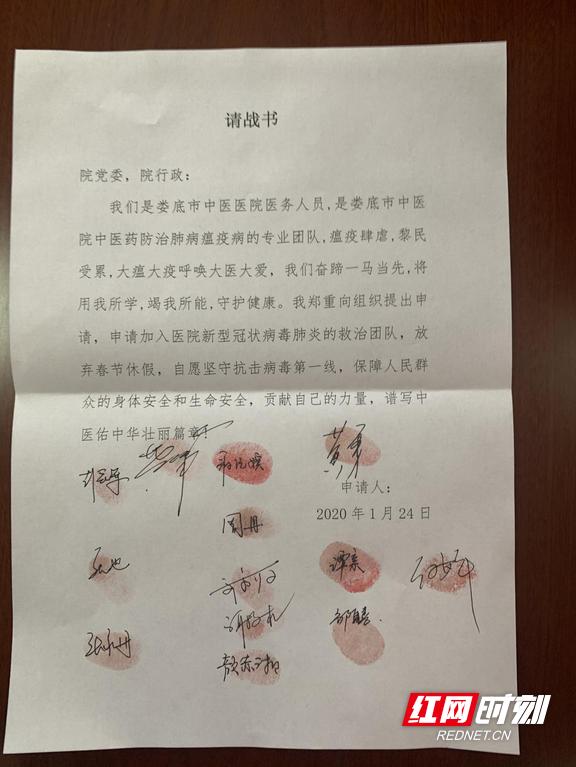 请战书
院党委，院行政：
我们是娄底市中医医院医务人员，是娄底市中医
院中医药防治肺病瘟疫病的专业团队，瘟疫肆虐，黎民
受累，大瘟大疫呼唤大医大爱，我们奋蹄一马当先，将
用我所学，竭我所能，守护健康。我郑重向组织提出申
请，申请加入医院新型冠状病毒肺炎的救治团队，放
弃春节休假，自愿坚守抗击病毒第一线，保障人民群
众的身体安全和生命安全，贡献自己的力量，谱写中
医佑中华壮丽篇章！
申请人：
周丹
2020年1月24日
红网时刻
REDNET.CN